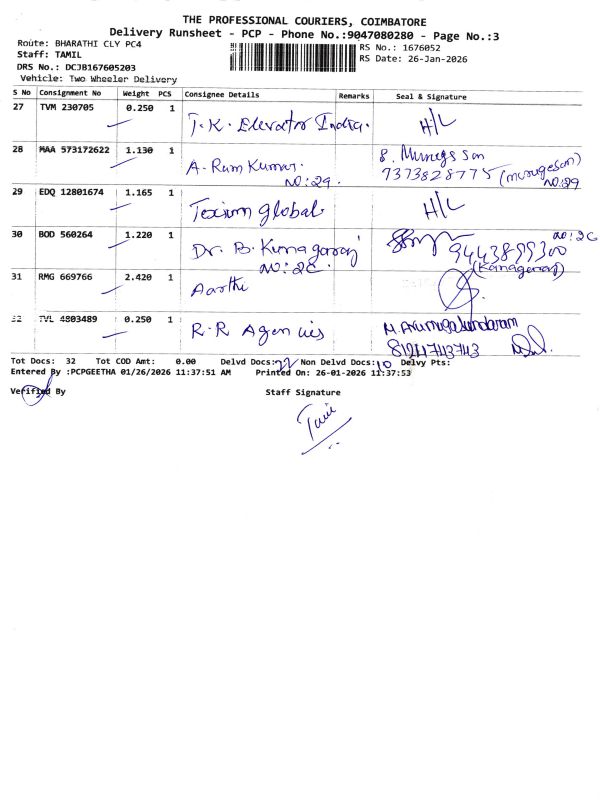 THE PROFESSIONAL COURIERS, COIMBATORE
Delivery Runsheet - PCP - Phone No.:9047080280 - Page No.:3
Route: BHARATHI CLY PC4
RS No.: 1676052
Staff: TAMIL
RS Date: 26-Jan-2026
DRS No.: DCJB167605203
Vehicle: Two Wheeler Delivery
S No Consignment No Weight PCS Consignee Details Remarks Seal & Signature
27 TVM 230705 0.250 1 T.K. Elevator India. H/L
28 MAA 573172622 1.130 1 A. Ram Kumar. S. Muruges San
NO:29. 7373828775 (murugesan)
NO:29
29 EDQ 12801674 1.165 1 Texium global H/L
30 BOD 560264 1.220 1 Dr. B. Kanagaraj NO:2C
NO:2C. 9443899300
(Kanagaraj)
31 RMG 669766 2.420 1 Aarthi
32 TVL 4803489 0.250 1 R.R Agencies M. Arumugasundaram
8124743743
Tot Docs: 32 Tot COD Amt: 0.00 Delvd Docs:22 Non Delvd Docs:10 Delvy Pts:
Entered By :PCPGEETHA 01/26/2026 11:37:51 AM Printed On: 26-01-2026 11:37:53
Verified By Staff Signature